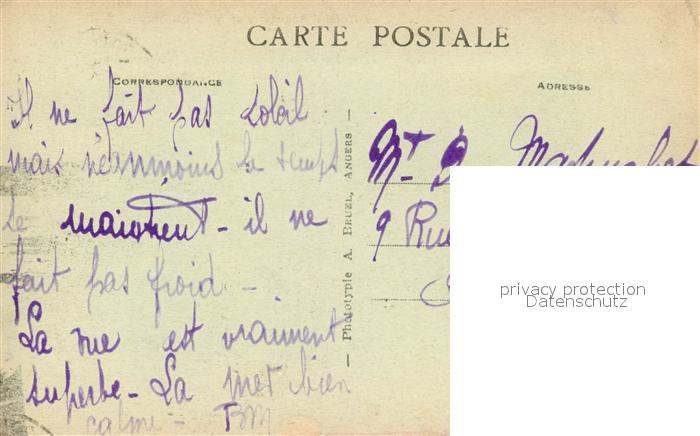 CARTE POSTALE
CORRESPONDANCE
ADRESSE
Il ne fait pas soleil
mais néanmoins le temps
se maintient - il ne
fait pas froid -
La vue est vraiment
superbe - La mer bien
calme - BM
— Phototypie A. BRUEL, ANGERS —
9 Rue
privacy protection
Datenschutz